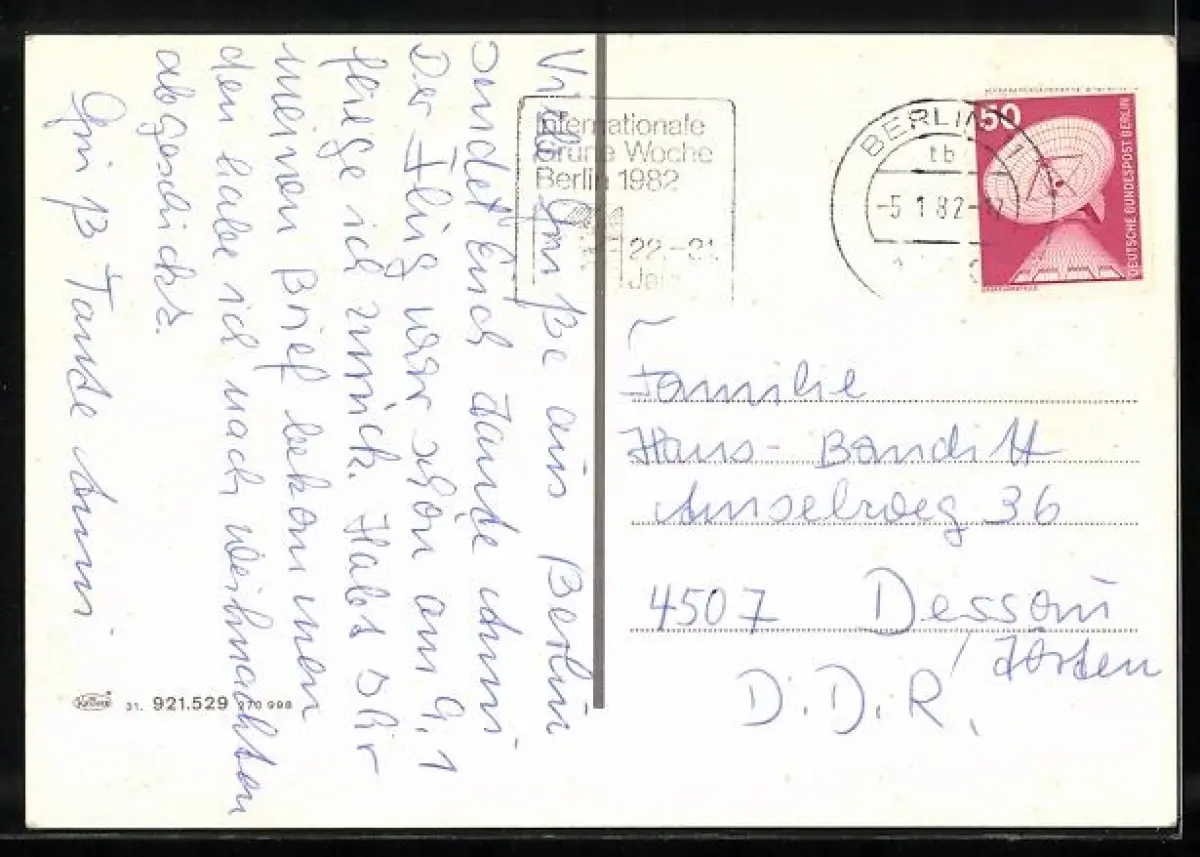 Viele Grüße aus Berlin
sendet Euch Tante Anni
Der Flug war schön am 9.1
fliege ich zurück. Habt Ihr
meinen Brief bekommen
den habe ich nach Weihnachten
abgeschickt.
Gruß Tante Anni
Internationale
Grüne Woche
Berlin 1982
22.-31.
Jan
BERLIN
tb
-5.1.82-
50
DEUTSCHE BUNDESPOST BERLIN
Familie
Hans-
Amselweg 36
4507 Dessau
D.D.R.
KRÜGER
31. 921.529 970 998